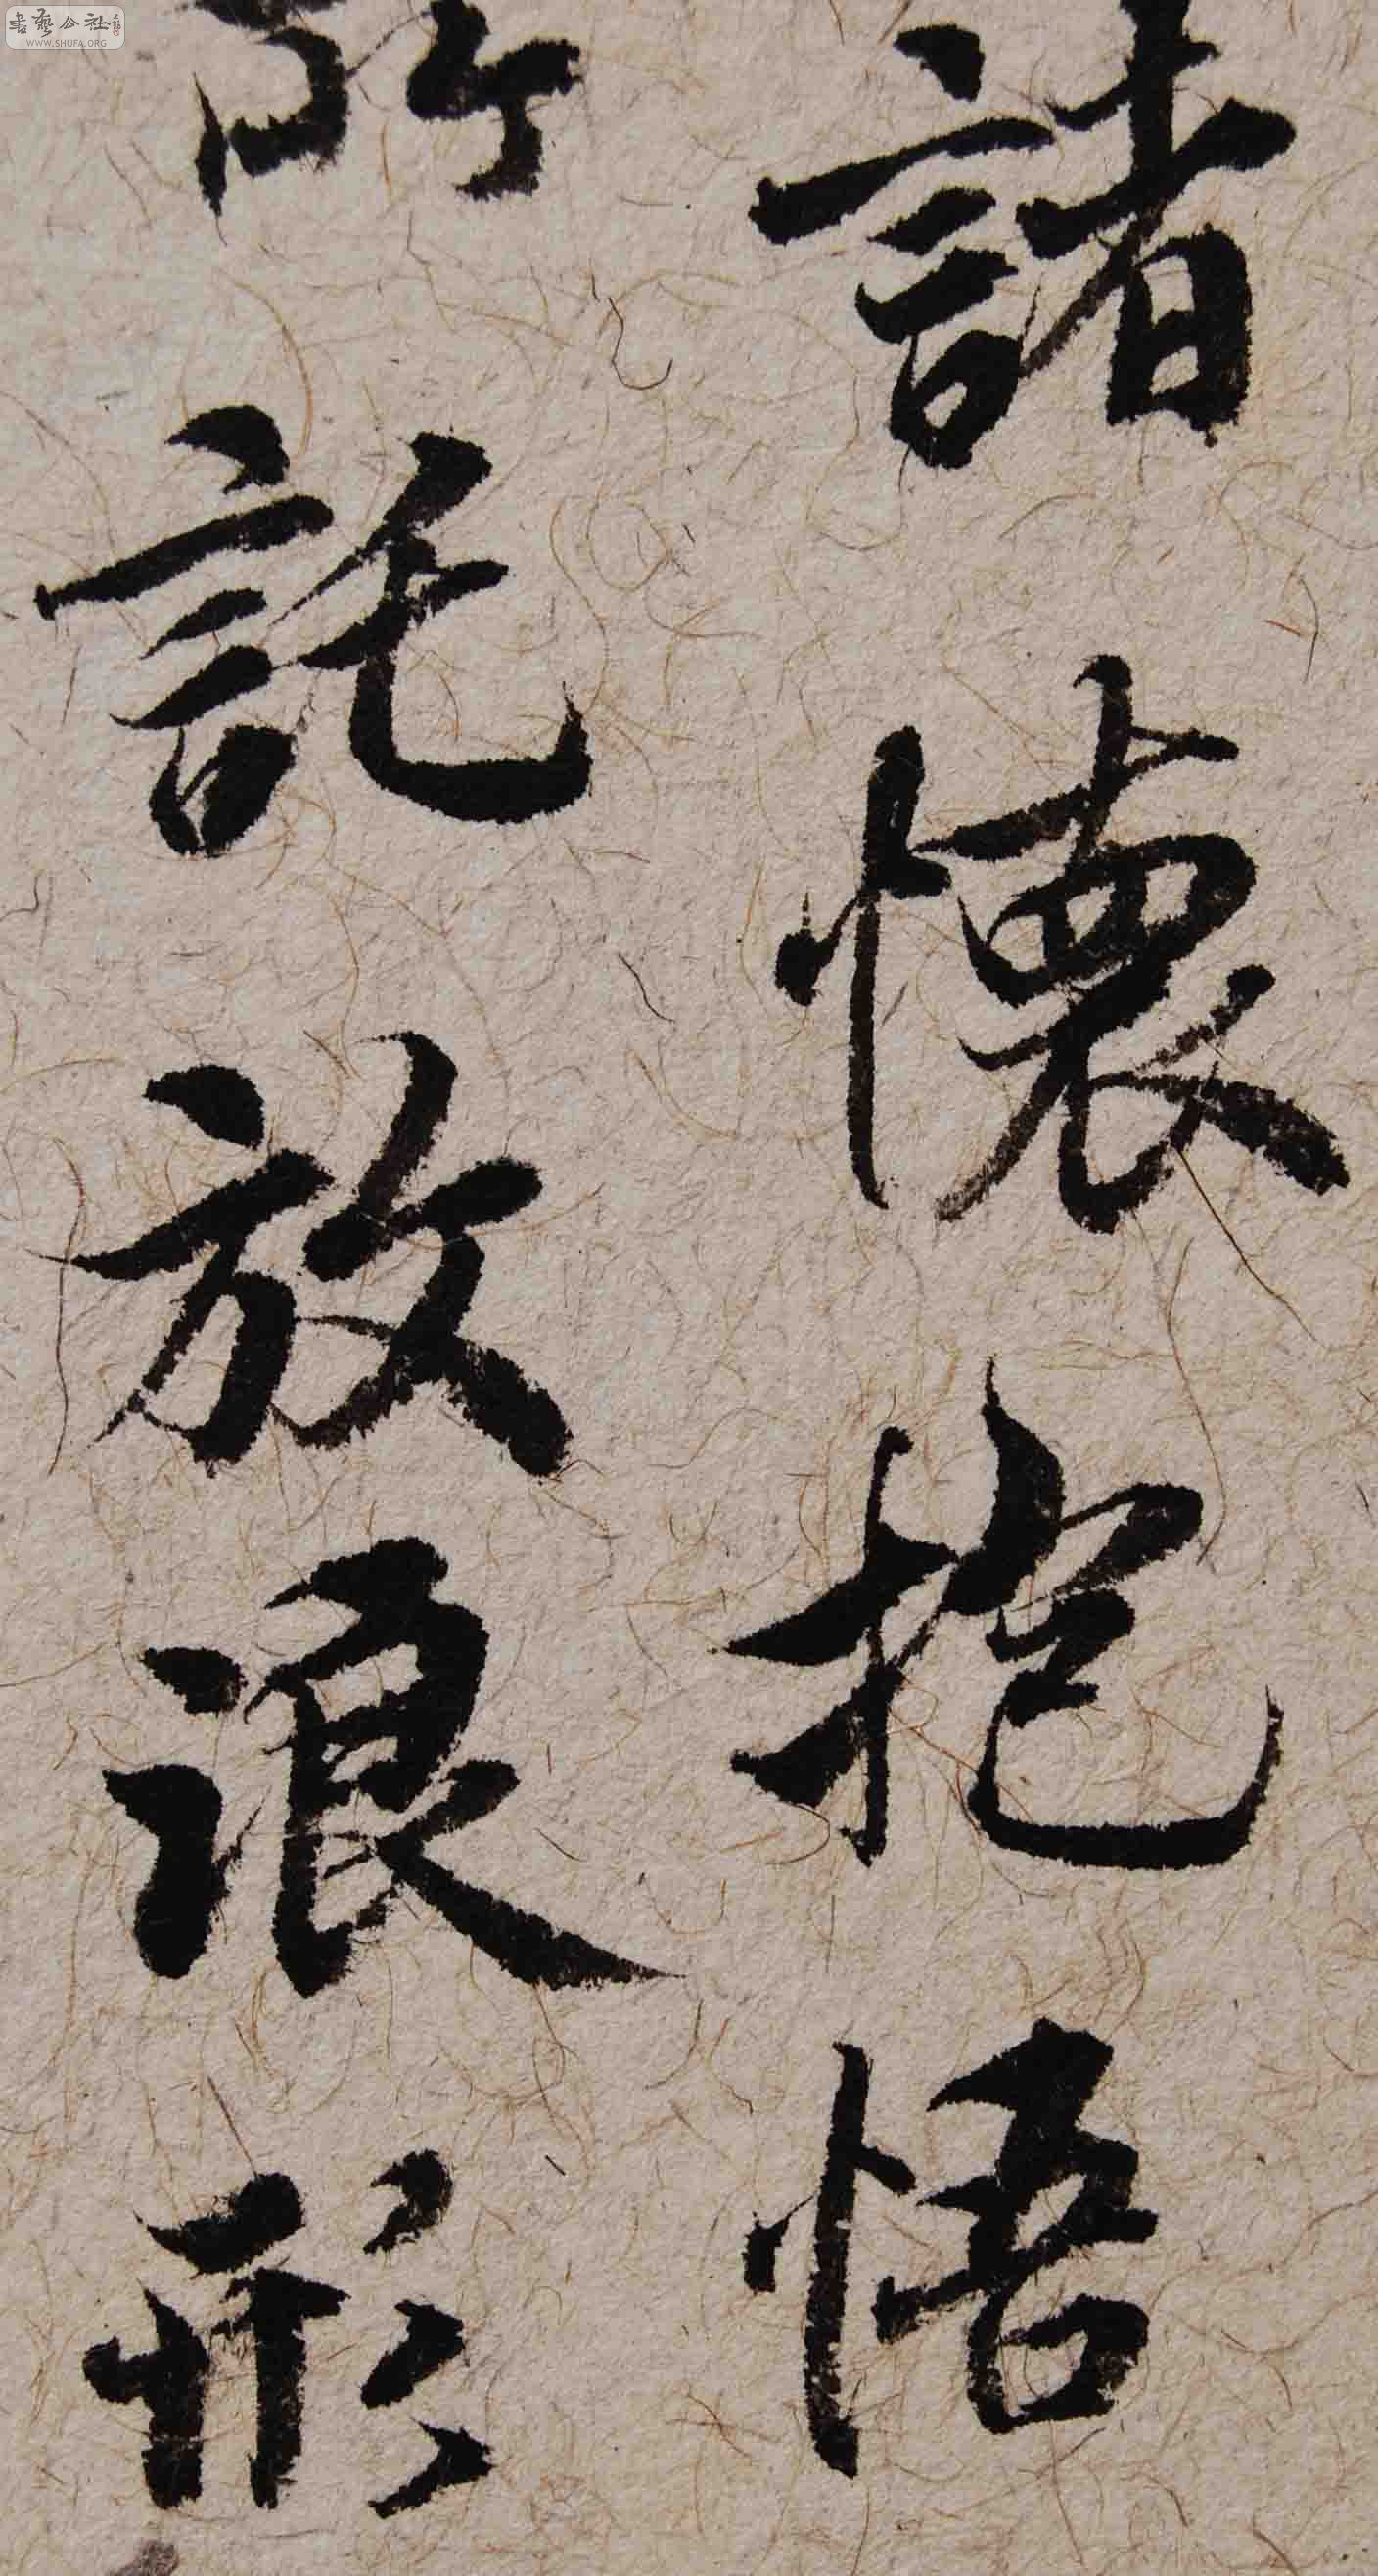 諸懷抱悟
所託放浪形
書藝公社
WWW.SHUFA.ORG